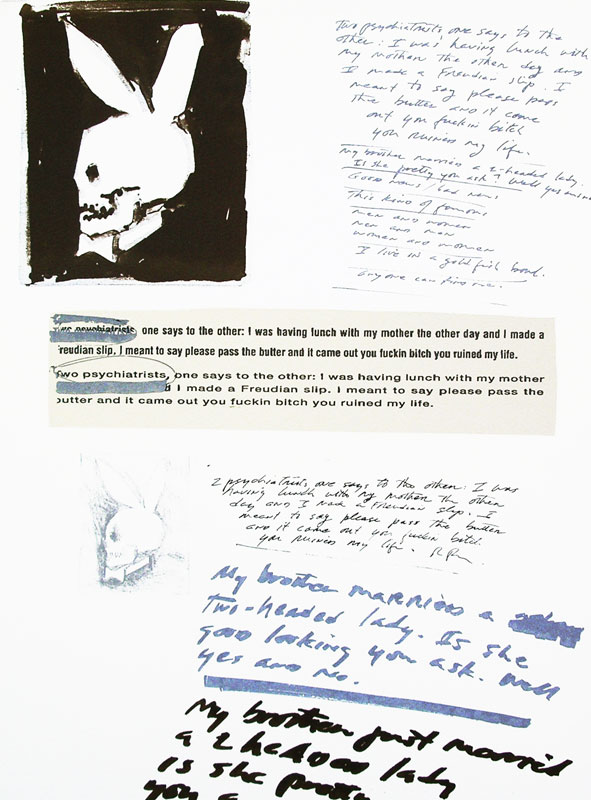 Two psychiatrists, one says to the
other: I was having lunch with
my mother the other day and
I made a Freudian slip. I
meant to say please pass
the butter and it came
out you fuckin bitch
you ruined my life.
My brother married a 2-headed lady.
Is she pretty you ask? Well yes and no
Good news / bad news
This kind of famous
men and women
men and men
women and women
I live in a goldfish bowl.
Anyone can
Two psychiatrists, one says to the other: I was having lunch with my mother the other day and I made a
reudian slip, I meant to say please pass the butter and it came out you fuckin bitch you ruined my life.
Two psychiatrists, one says to the other: I was having lunch with my mother
d I made a Freudian slip. I meant to say please pass the
butter and it came out you fuckin bitch you ruined my life.
2 psychiatrists, one says to the other: I was
having lunch with my mother the other
day and I made a Freudian slip. I
meant to say please pass the butter
and it came out you fuckin bitch
you ruined my life. R P
My brother married a
two-headed lady. Is she
good looking you ask. Well
yes and no.
My brother just married
a 2 headed lady
is she pretty
you a